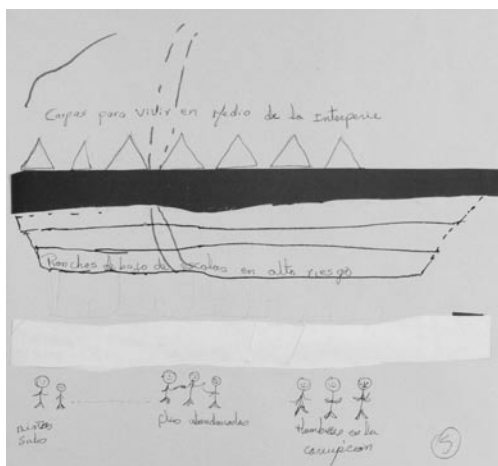 Carpas para vivir en Medio de la Interperie
Ranchos debajo de escalas en alto riesgo
niños
solos
abandonados
Hombres en la
corrupción
5